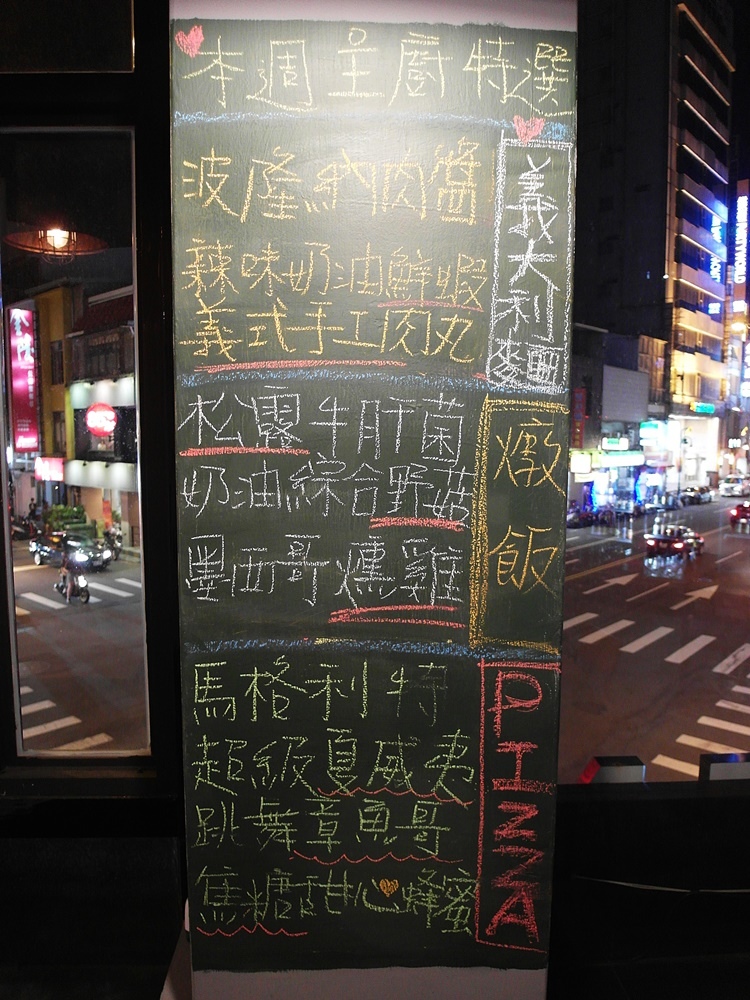 本週主廚特選
義大利麵
波隆納肉醬
辣味奶油鮮蝦
義式手工肉丸
燉飯
松露牛肝菌
奶油綜合野菇
墨西哥燻雞
PIZZA
馬格利特
超級夏威夷
跳舞章魚哥
焦糖甜心蜂蜜